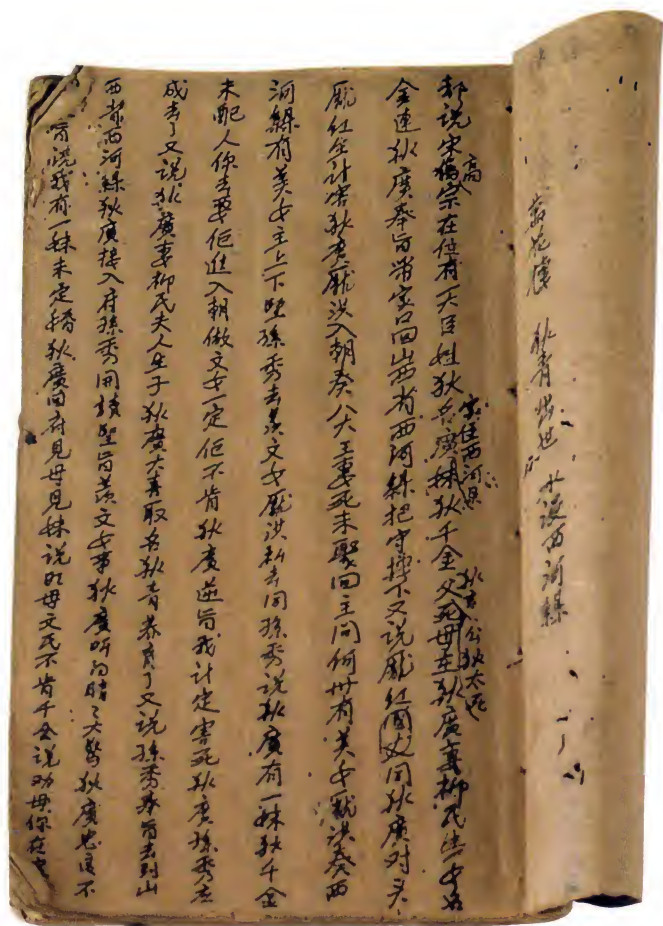 万花楼 狄青出世 水浸西河縣
却说宋高宗在位有一大臣姓狄名廣妹狄千金父死母在狄廣妻柳氏生一女名
家住西河县
金連狄廣奉旨帶家口回山西省西河縣把守擔下又说龐紅國丈同狄廣对头
龐紅金計害狄廣龐洪入朝奏八大王妻死未聚回主问何州有美女龐洪奏西
河縣有美女主上下聖孫秀去美文女龐洪私去同孫秀说狄廣有一妹狄千金
未配人你去要佢進入朝做文女一定佢不肯狄廣逆旨我計定害死狄廣孫秀去
成去了又说狄廣妻柳氏夫人生子狄廣大喜取名狄青养育了又说孫秀奉旨去到山
西省西河縣狄廣接入府孫秀開讀聖旨美文女事狄廣听知暗了大驚狄廣忠良不
肯说我有一妹未定婚狄廣回府見母見妹说知母文氏不肯千金说劝母你在堂